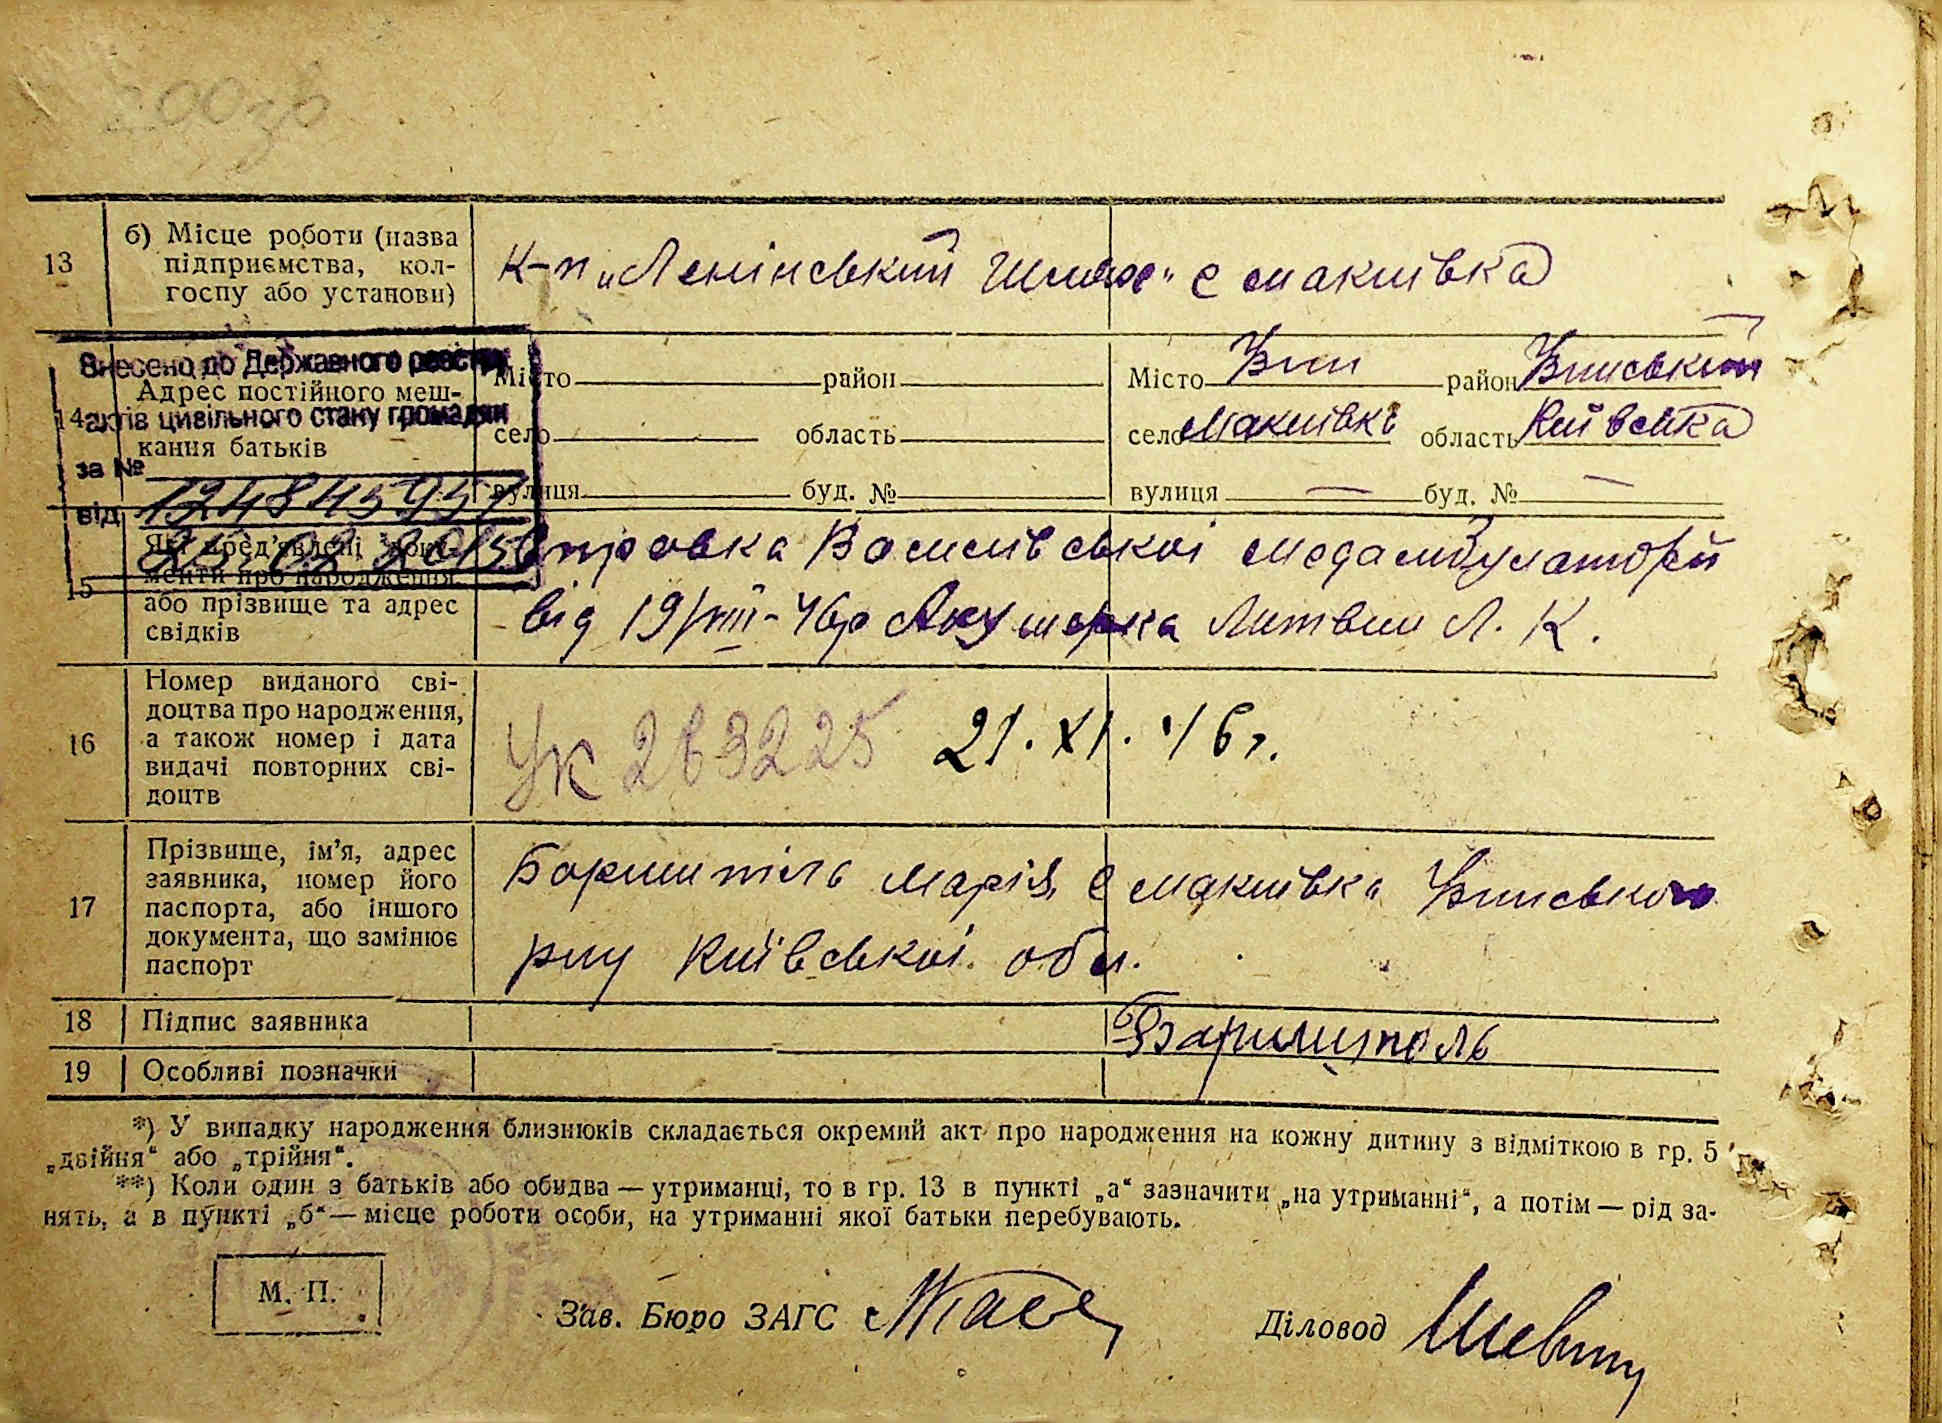 13
б) Місце роботи (назва
підприємства, кол-
госпу або установи)
к-п „Ленінський Шлях“ с Макиївка
Внесено до Державного реєстру
актів цивільного стану громадян
за №
від
14
Адрес постійного меш-
кання батьків
Місто район
село область
вулиця буд. №
Місто район
село Макиївка область Київська
вулиця — буд. № —
15
Які пред'явлені доку-
менти про народження
або прізвище та адрес
свідків
медамбулаторії
від 19/VIII-46р Акушерка Литвин Л. К.
16
Номер виданого сві-
доцтва про народження,
а також номер і дата
видачі повторних сві-
доцтв
УК 263225 21. XI. 46 г.
17
Прізвище, ім'я, адрес
заявника, номер його
паспорта, або іншого
документа, що замінює
паспорт
Марія с Макиївка
р-ну Київської обл.
18
Підпис заявника
19
Особливі позначки
*) У випадку народження близнюків складається окремий акт про народження на кожну дитину з відміткою в гр. 5
„двійня“ або „трійня“.
**) Коли один з батьків або обидва — утриманці, то в гр. 13 в пункті „а“ зазначити „на утриманні“, а потім — рід за-
нять, а в пункті „б“ — місце роботи особи, на утриманні якої батьки перебувають.
М. П.
Зав. Бюро ЗАГС
Діловод